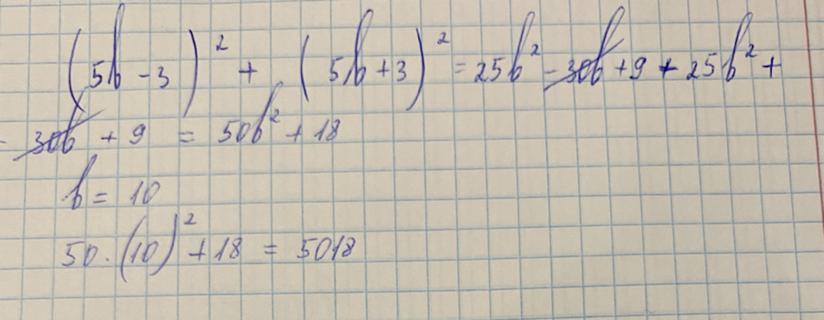 (5b - 3)² + (5b + 3)² = 25b² - 30b + 9 + 25b² +
+ 30b + 9 = 50b² + 18
b = 10
50 · (10)² + 18 = 5018